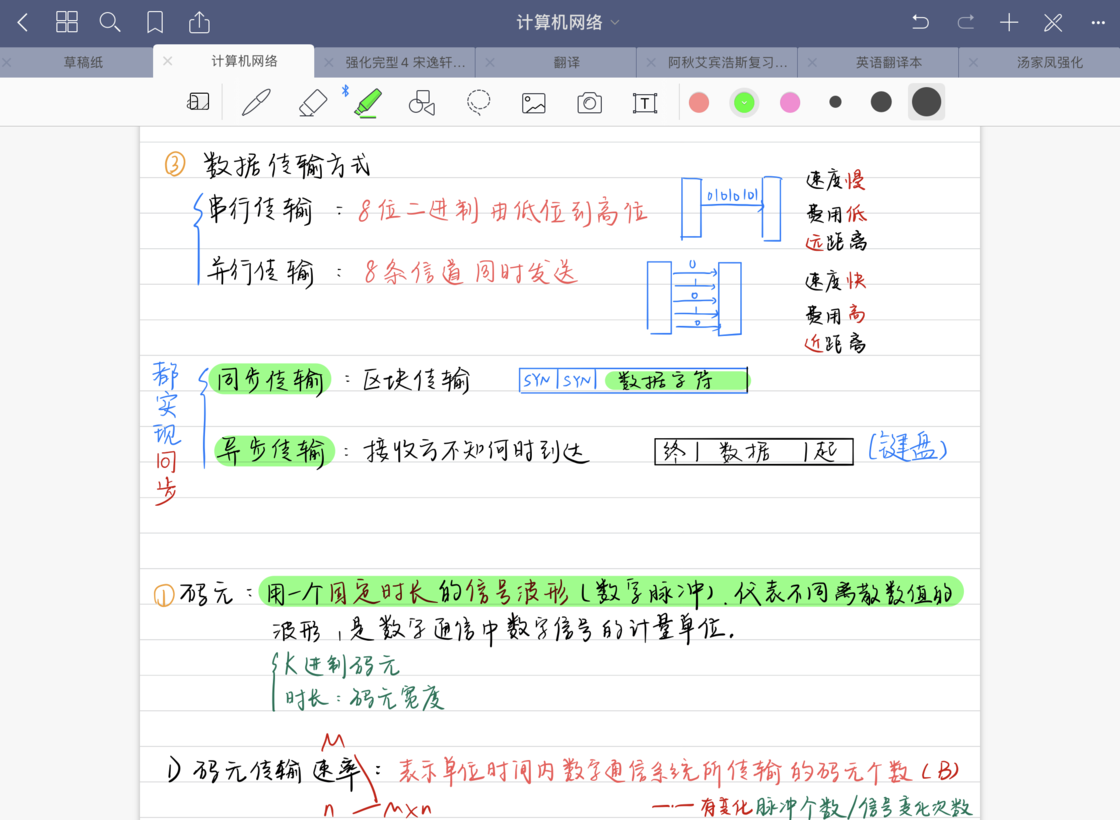 计算机网络
草稿纸
计算机网络
强化完型4 宋逸轩...
翻译
阿秋艾宾浩斯复习...
英语翻译本
汤家凤强化
③ 数据传输方式
串行传输 : 8位二进制 由低位到高位
01010101
速度慢
费用低
远距离
并行传输 : 8条信道 同时发送
0
1
0
1
0
速度快
费用高
近距离
都实现同步
同步传输 : 区块传输
SYN SYN 数据字符
异步传输 : 接收方不知何时到达
终 数据 起
(键盘)
① 码元 : 用一个固定时长的信号波形(数字脉冡). 代表不同离散数值的
波形, 是数字通信中数字信号的计量单位.
K进制码元
时长 : 码元宽度
M
1) 码元传输速率 : 表示单位时间内数字通信系统所传输的码元个数(B)
n
M×n
有变化脉冲个数/信号变化次数